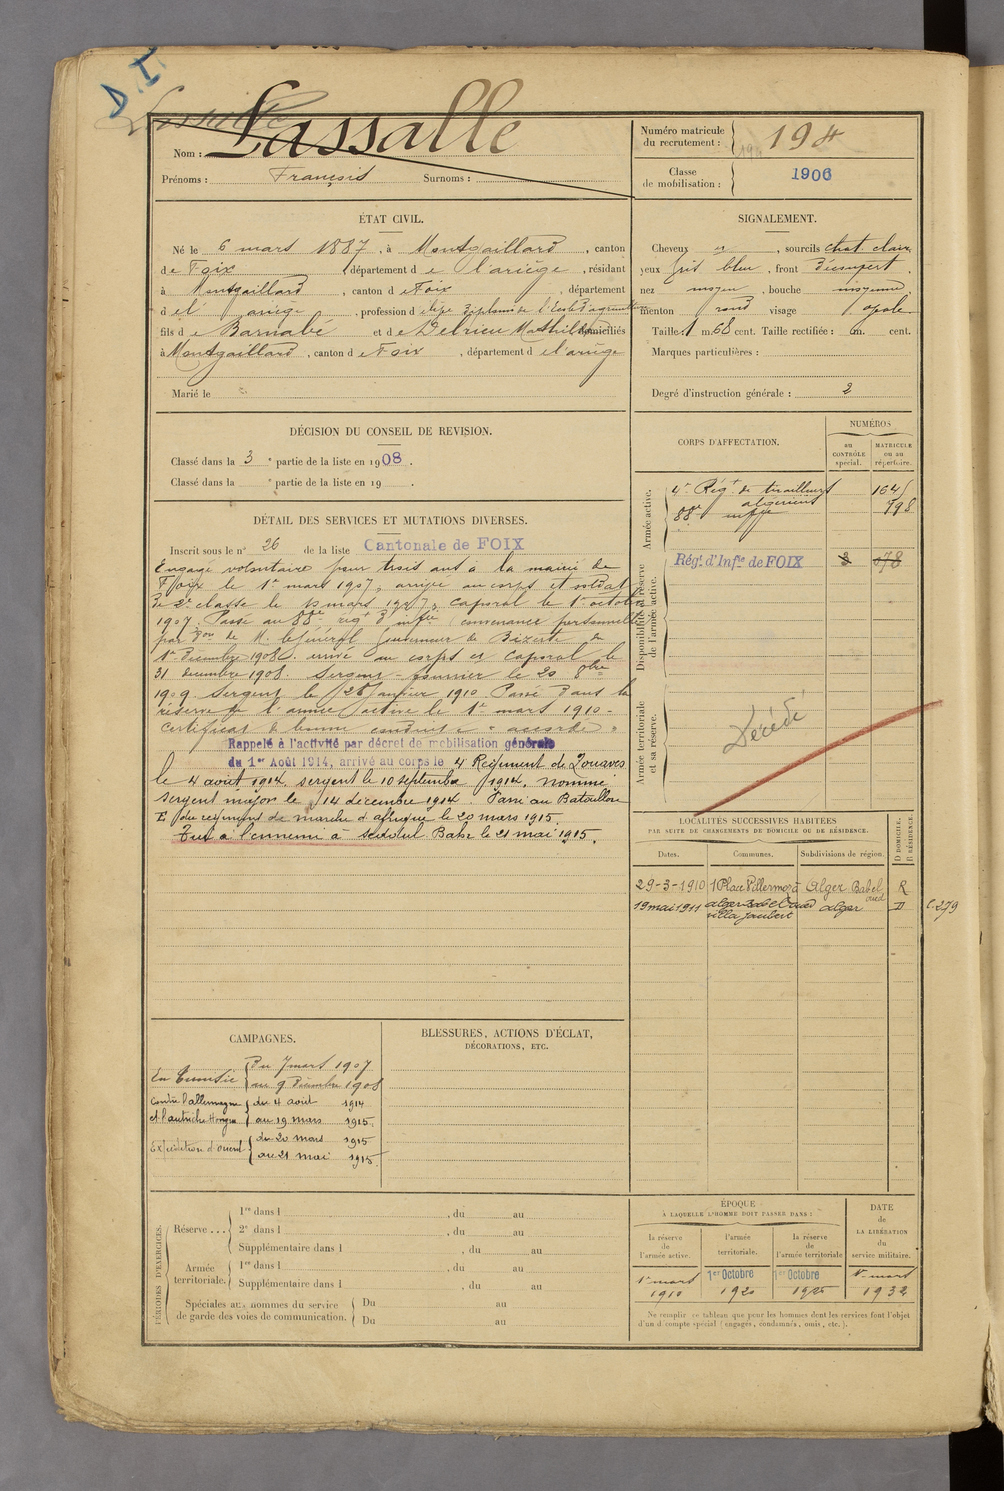 D I
Lassalle
Nom : Lassalle
Prénoms : François Surnoms :
Numéro matricule
du recrutement :
Classe
de mobilisation : 1906
ÉTAT CIVIL.
Né le 6 mars 1887, à Montgaillard, canton
de Foix, département de l'ariège, résidant
à Montgaillard, canton de Foix, département
d el ariège, profession d élève diplomé de l'Ecole d'agriculture
fils de Barnabé et de Delrieu Mathilde domiciliés
à Montgaillard, canton de Foix, département de l'ariège
Marié le
SIGNALEMENT.
Cheveux et, sourcils chat. clairs,
yeux gris bleu, front découvert,
nez moyen, bouche moyenne,
menton rond visage ovale.
Taille : 1 m. 68 cent. Taille rectifiée : m. cent.
Marques particulières :
Degré d'instruction générale : 2
DÉCISION DU CONSEIL DE REVISION.
Classé dans la 3e partie de la liste en 1908.
Classé dans la e partie de la liste en 19 .
DÉTAIL DES SERVICES ET MUTATIONS DIVERSES.
Inscrit sous le n° 26 de la liste Cantonale de FOIX
Engagé volontaire pour trois ans à la mairie de
Foix le 1er mars 1907, arrivé au corps et soldat
de 2e classe le mars 1907, caporal le 1er octobre
1907. Passé au 88me régt d'infie (convenance personnelle)
par don de M. le Général gouverneur de Bizerte du
1er Décembre 1908. arrivé au corps et caporal le
31 décembre 1908. Sergent-fourrier le 20 8bre
1909. Sergent le 28 janvier 1910. Passé dans la
réserve de l'armée active le 1er mars 1910.
Certificat de bonne conduite "accordé"
Rappelé à l'activité par décret de mobilisation générale
du 1er Août 1914, arrivé au corps le 4e Régiment de Zouaves
le 4 août 1914, sergent le 10 septembre 1914, nommé
sergent major le 14 décembre 1914. Passé au Bataillon
E du régiment de marche d'afrique le 20 mars 1915.
Tué à l'ennemi à seddul Bahr le 21 mai 1915.
CORPS D'AFFECTATION.
NUMÉROS
au
CONTRÔLE
spécial.
MATRICULE
ou au
répertoire.
Armée active.
4e Régt de tirailleurs
algériens
88me infie
798
Disponibilité et réserve
de l'armée active.
Régt d'Infie de FOIX
Armée territoriale
et sa réserve.
Décédé
LOCALITÉS SUCCESSIVES HABITÉES
PAR SUITE DE CHANGEMENTS DE DOMICILE OU DE RÉSIDENCE.
Dates.
Communes.
Subdivisions de région.
D DOMICILE.
R RÉSIDENCE.
29-3-1910 1 Place à Alger Bab el oued R
19 mai 1911 alger Bab el oued alger D
villa Jaubert
C. 279
CAMPAGNES.
En Tunisie du 7 mars 1907
au 9 Décembre 1908
Contre l'allemagne du 4 août 1914
et l'autriche Hongrie au 19 mars 1915.
Expédition d'orient du 20 mars 1915
au 21 mai 1915.
BLESSURES, ACTIONS D'ÉCLAT,
DÉCORATIONS, ETC.
PÉRIODES D'EXERCICES.
Réserve ...
1re dans l , du au
2e dans l , du au
Supplémentaire dans l , du au
Armée
territoriale.
1re dans l , du au
Supplémentaire dans l , du au
Spéciales aux hommes du service
de garde des voies de communication.
Du au
Du au
ÉPOQUE
À LAQUELLE L'HOMME DOIT PASSER DANS :
la réserve
de
l'armée active.
l'armée
territoriale.
la réserve
de
l'armée territoriale
DATE
de
LA LIBÉRATION
du
service militaire.
1er mars
1910
1er Octobre
1920
1er Octobre
1926
1er mars
1932
Ne remplir ce tableau que pour les hommes dont les services font l'objet
d'un décompte spécial (engagés, condamnés, omis, etc.).